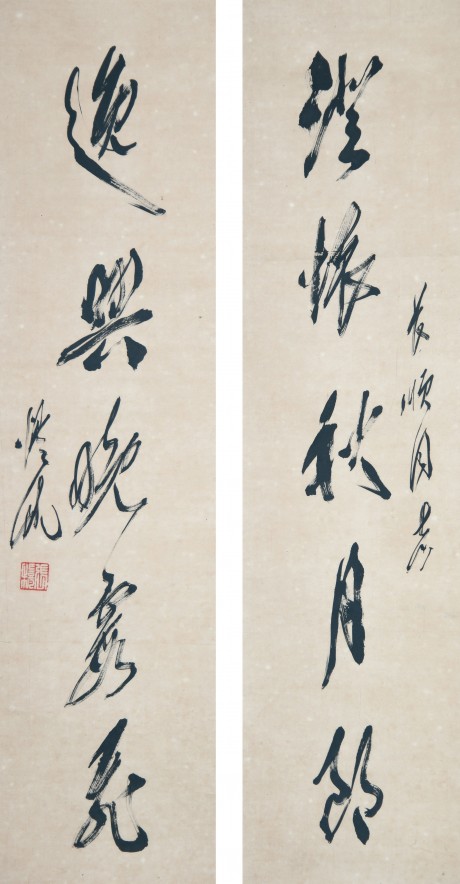 澄懷秋月朗
友順同志
逸興晚霞飛
愷帆